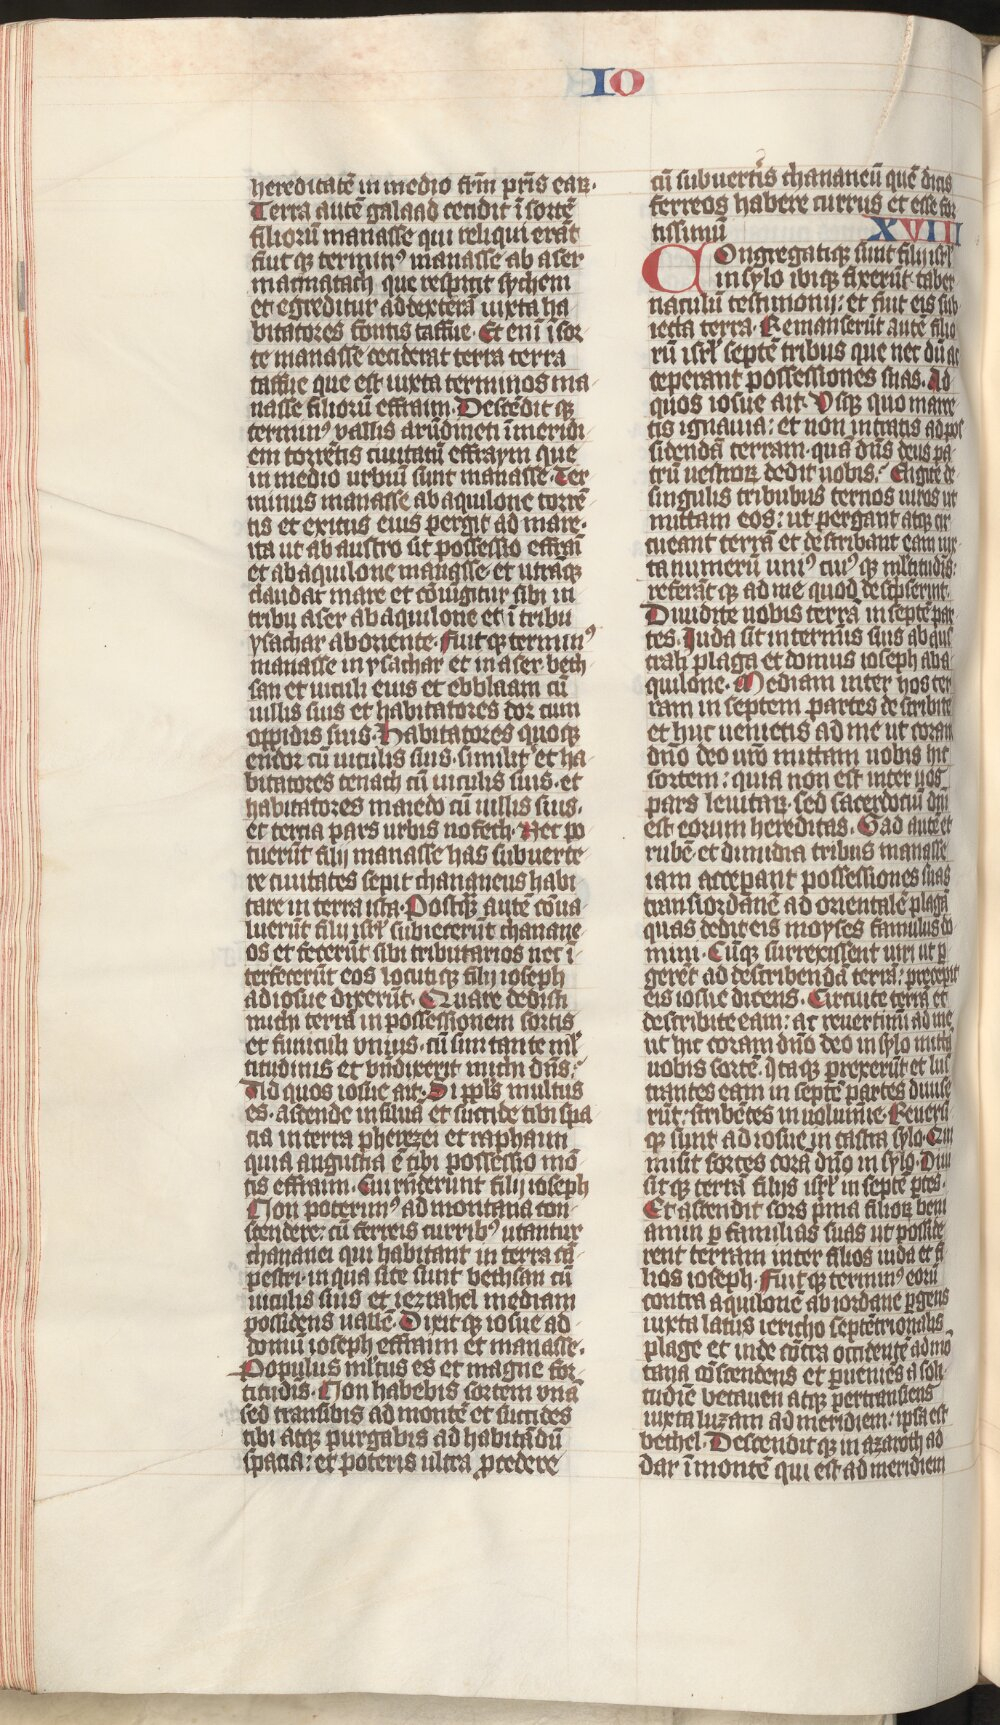 IO
hereditatē in medio frm̄ pr̄is eaꝝ.
Terra autē galaad cecidit ī sortē
filiorū manasse qui reliqui erāt
fuit qꝫ terminꝰ manasse ab aser
machmatach que respicit sychem
et egreditur ad dexterā iuxta ha
bitatores fontis taffue. Et enī ī sor
te manasse ceciderat terra terra
taffue que est iuxta terminos ma
nasse filiorū effraim. Descēdit qꝫ
terminꝰ vallis arūdineti ī meridi
em torrētis ciuitatū effraym que
in medio urbiū sunt manasse. Ter
minus manasse ab aquilone torrē
tis et exitus eius pergit ad mare.
ita ut ab austro sit possessio effraī
et ab aquilone manasse et utrāqꝫ
claudat mare et cōiūgitur sibi in
tribu aser ab aquilone et ī tribu
ysachar ab oriente. Fuit qꝫ terminꝰ
manasse in ysachar et in aser beth
san et uiculi eius et ebblaam cū
uillis suis et habitatores dor cum
oppidis suis. Habitatores quoqꝫ
endor cū uiculis suis. similit̄ et ha
bitatores tenach cū uiculis suis. et
habitatores magedo cū uillis suis.
et tercia pars urbis nofeth. Nec po
tuerūt filij manasse has subuerte
re ciuitates sepit chananeus habi
tare in terra ista. Postqꝫ autē cōua
luerūt filij isrl̄ subiecerūt chanane
os et fecerūt sibi tributarios nec ī
terfecerūt eos locuti qꝫ filij ioseph
ad iosue dixerūt. Quare dedisti
michi terrā in possessionem sortis
et funiculi vnius. cū sim tante ml̄
titudinis et bn̄dixerit michi dn̄s.
Ad quos iosue ait. Si ppl̄s multus
es. ascende in siluā et succide tibi spa
cia in terra pherezei et raphaim
quia angusta ē tibi possessio mō
tis effraim. Cui rn̄derunt filij ioseph
Non poterimꝰ ad montana con
scendere: cū ferreis curribꝰ utantur
chananei qui habitant in terra cā
pestri. in qua site sunt bethsan cū
uiculis suis et iezrahel mediam
possidens uallē. Dixit qꝫ iosue ad
domū ioseph effraim et manasse.
Populus ml̄tus es et magne for
titudis. Non habebis sortem vnā
sed transibis ad montē et succides
tibi atqꝫ purgabis ad habitādū
spacia: et poteris ultra ꝓcedere
cū subuert̄is chananeū quē dicis
ferreos habere currus et esse for
tissimū XVIII
Congregatiqꝫ sunt filij isrl̄
in sylo ibiqꝫ fixerūt taber
naculū testimonij: et fuit eis sub
iecta terra. Remanserūt autē filio
rū isrl̄ septē tribus que nec dū ac
ceperant possessiones suas. Ad
quos iosue ait. Vsqꝫ quo marce
tis ignauia: et non intratis ad pos
sidendā terram. quā dn̄s deus pa
trū uestroꝝ dedit uobis. Eligite de
singulis tribubus ternos uiros ut
mittam eos: ut pergant atqꝫ cir
cueant terrā et describant eam iux
ta numerū uniꝰ cuiꝰ qꝫ ml̄titudīs:
referāt qꝫ ad me quod descpserint.
Diuidite uobis terrā in septē par
tes. Iuda sit in termis suis ab aus
trali plaga et domus ioseph ab a
quilone. Mediam inter hos ter
ram in septem partes describite
et huc uenietis ad me ut coram
dn̄o deo ur̄o mittam uobis hic
sortem: quia non est inter uos
pars leuitaꝝ. sed sacerdociū dn̄i
est eorum hereditas. Gad autē et
rubē et dimidia tribus manasse
iam acceperant possessiones suas
trans iordanē ad orientalē plagā
quas dedit eis moyses famulus do
mini. Cūqꝫ surrexissent uiri ut ꝑ
gerēt ad describendā terrā: precepit
eis iosue dicens. Circuite terrā et
describite eam: ac reuertimī ad me
ut hic coram dn̄o deo in sylo mittā
uobis sortē. Itaqꝫ prexerūt et lus
trantes eam in septē partes diuise
rūt. scribētes in uolumīe. Reuersi
qꝫ sunt ad iosue in castra sylo. Qui
misit sortes corā dn̄o in sylo. Diui
sit qꝫ terrā filijs isrl̄ in septē ptes.
Et ascendit sors prīa filioꝝ beni
amin ꝑ familias suas ut posside
rent terram inter filios iuda et fi
lios ioseph. Fuit qꝫ terminꝰ eorū
contra aquilonē ab iordane ꝑgens
iuxta latus iericho septētrionalis
plage et inde cōtra occidentē ad mō
tana cōscendens et ꝑueniēs ad soli
tudīē betauen atqꝫ pertransiens
iuxta luzam ad meridiem: ipsa est
bethel. Descendit qꝫ in azaroth ad
dar ī montē qui est ad meridiem